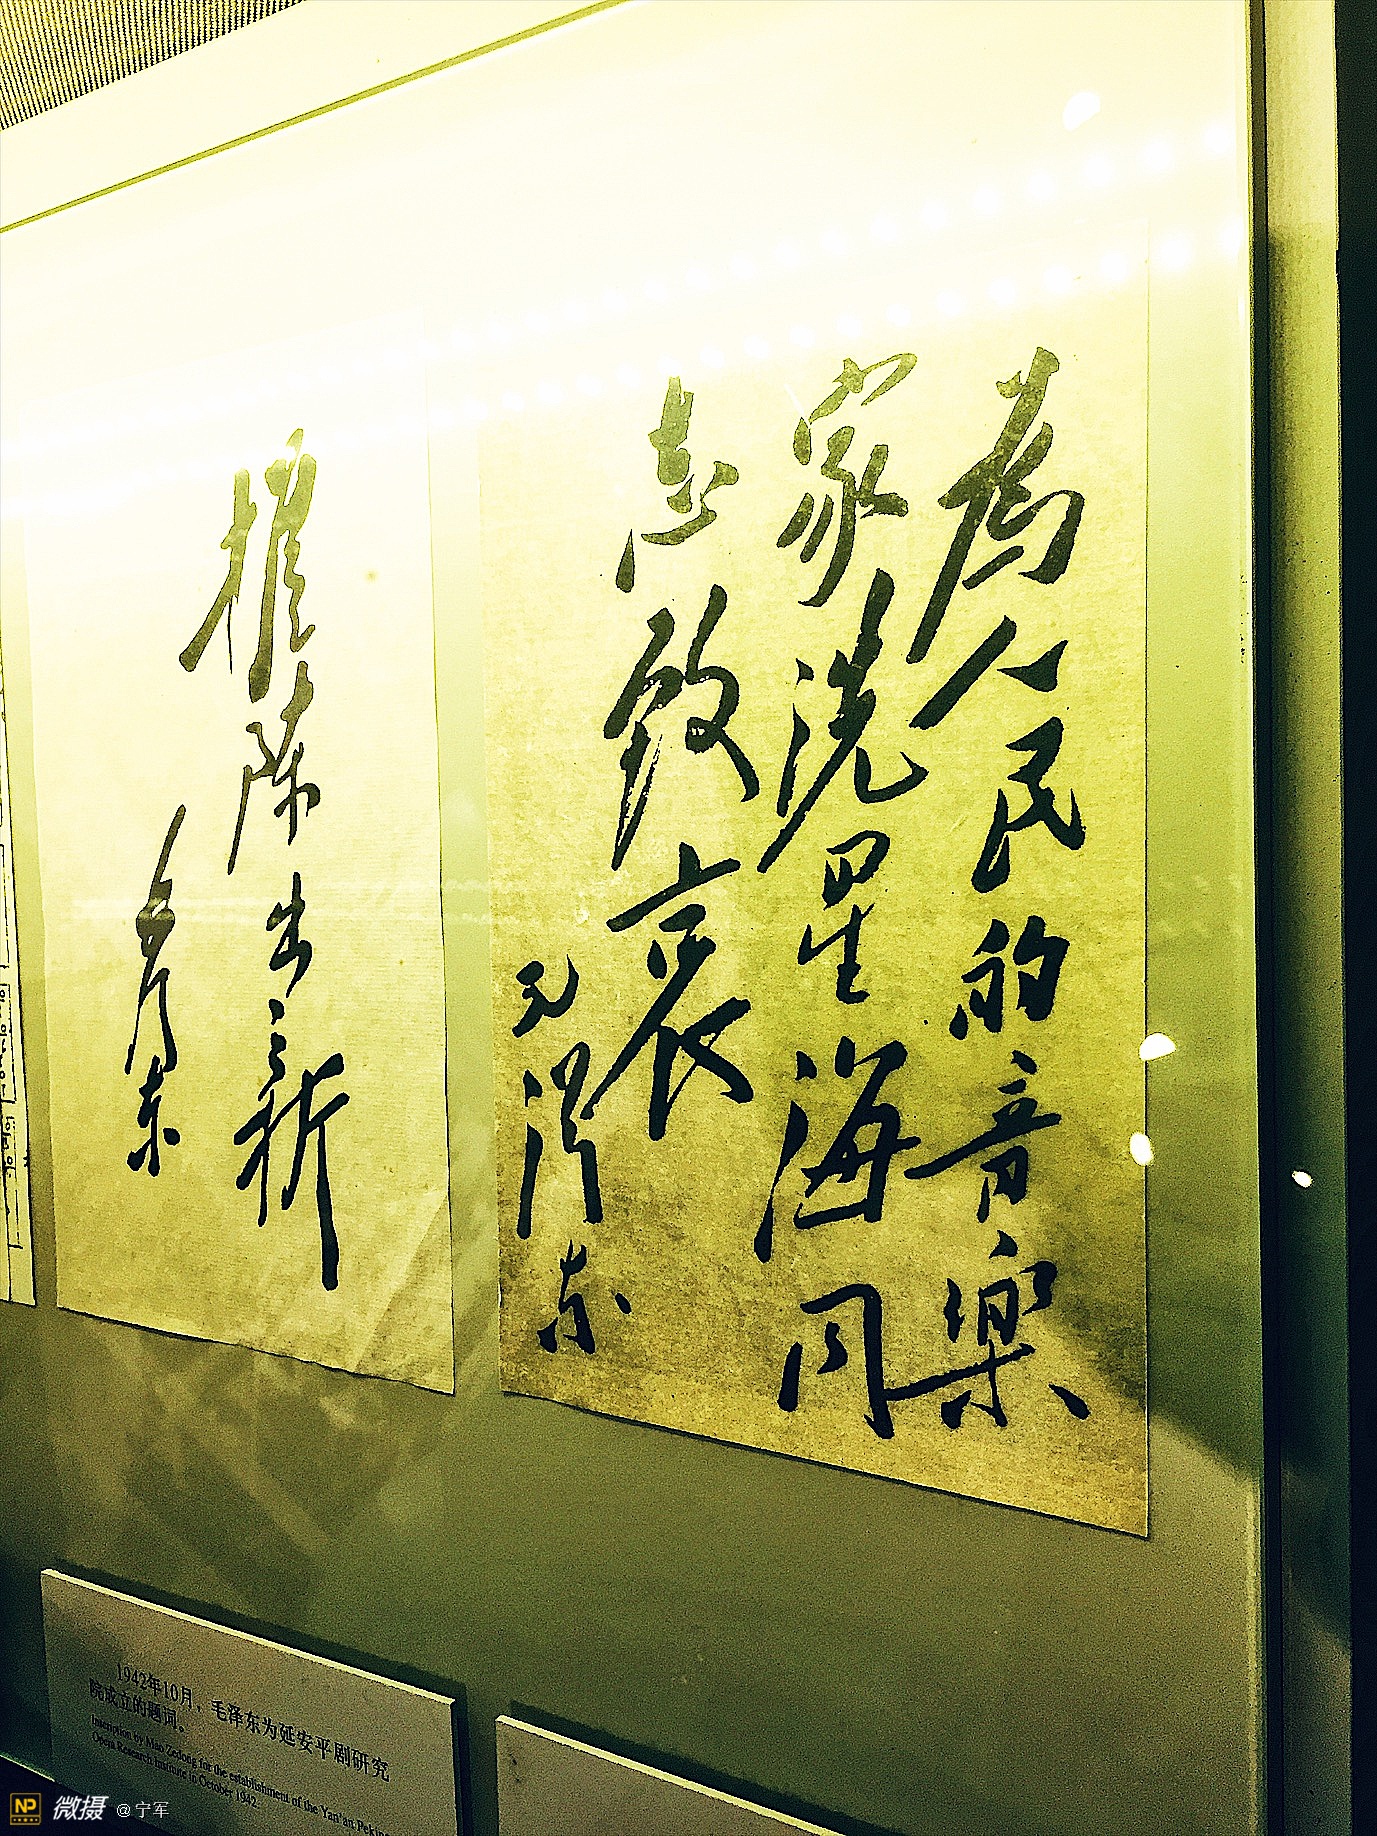 為人民的音樂
家冼星海同
志致哀
毛澤东
推陈出新
毛澤东
1942年10月，毛泽东为延安平剧研究
院成立的题词。
Inscription by Mao Zedong for the establishment of the Yan'an Peking
Opera Research Institute in October 1942.
NP 微摄 @宁军